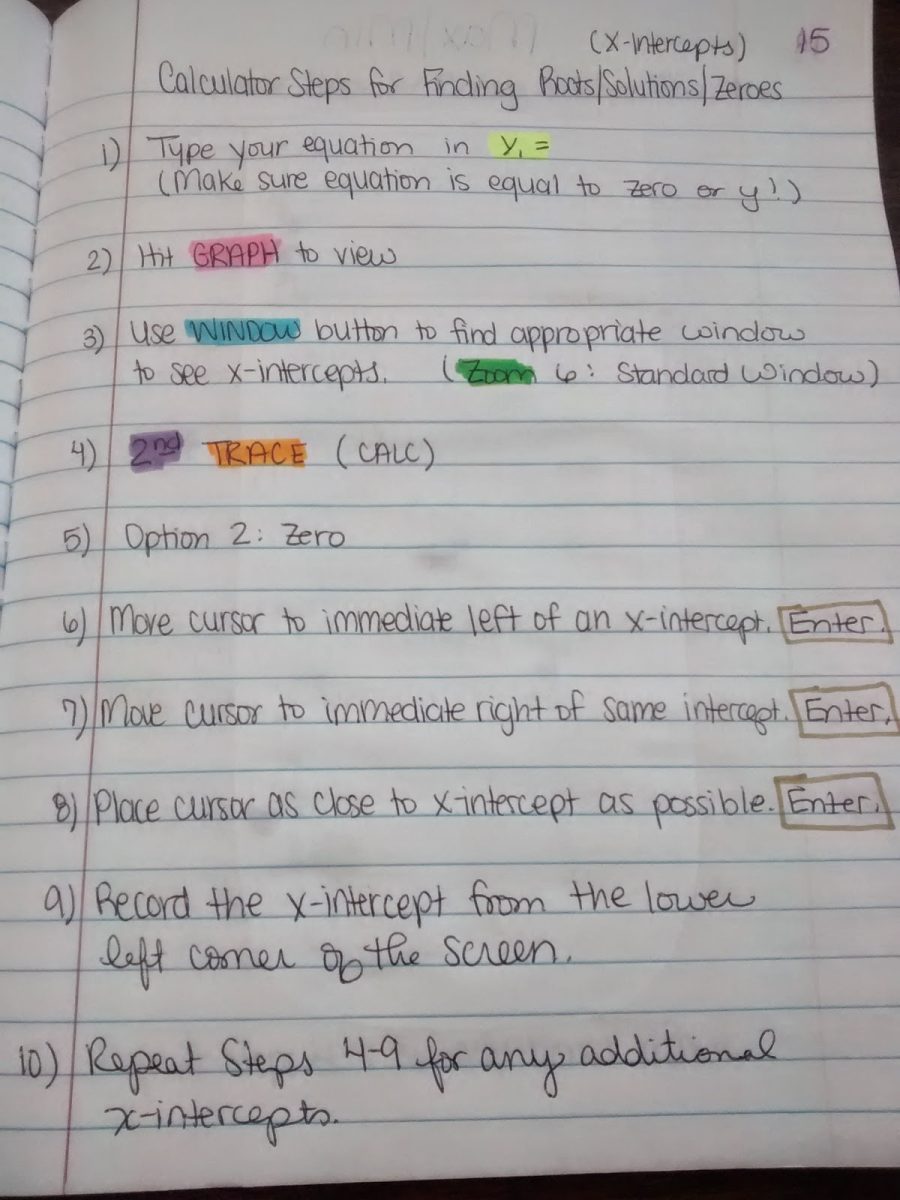 (x-intercepts) 15
Calculator Steps for Finding Roots/Solutions/Zeroes
1) Type your equation in y₁ =
(Make sure equation is equal to zero or y!)
2) Hit GRAPH to view
3) Use WINDOW button to find appropriate window
to see x-intercepts. (Zoom 6: Standard Window)
4) 2nd TRACE (CALC)
5) Option 2: Zero
6) Move cursor to immediate left of an x-intercept. Enter.
7) Move cursor to immediate right of same intercept. Enter.
8) Place cursor as close to x-intercept as possible. Enter.
9) Record the x-intercept from the lower
left corner of the screen.
10) Repeat Steps 4-9 for any additional
x-intercepts.